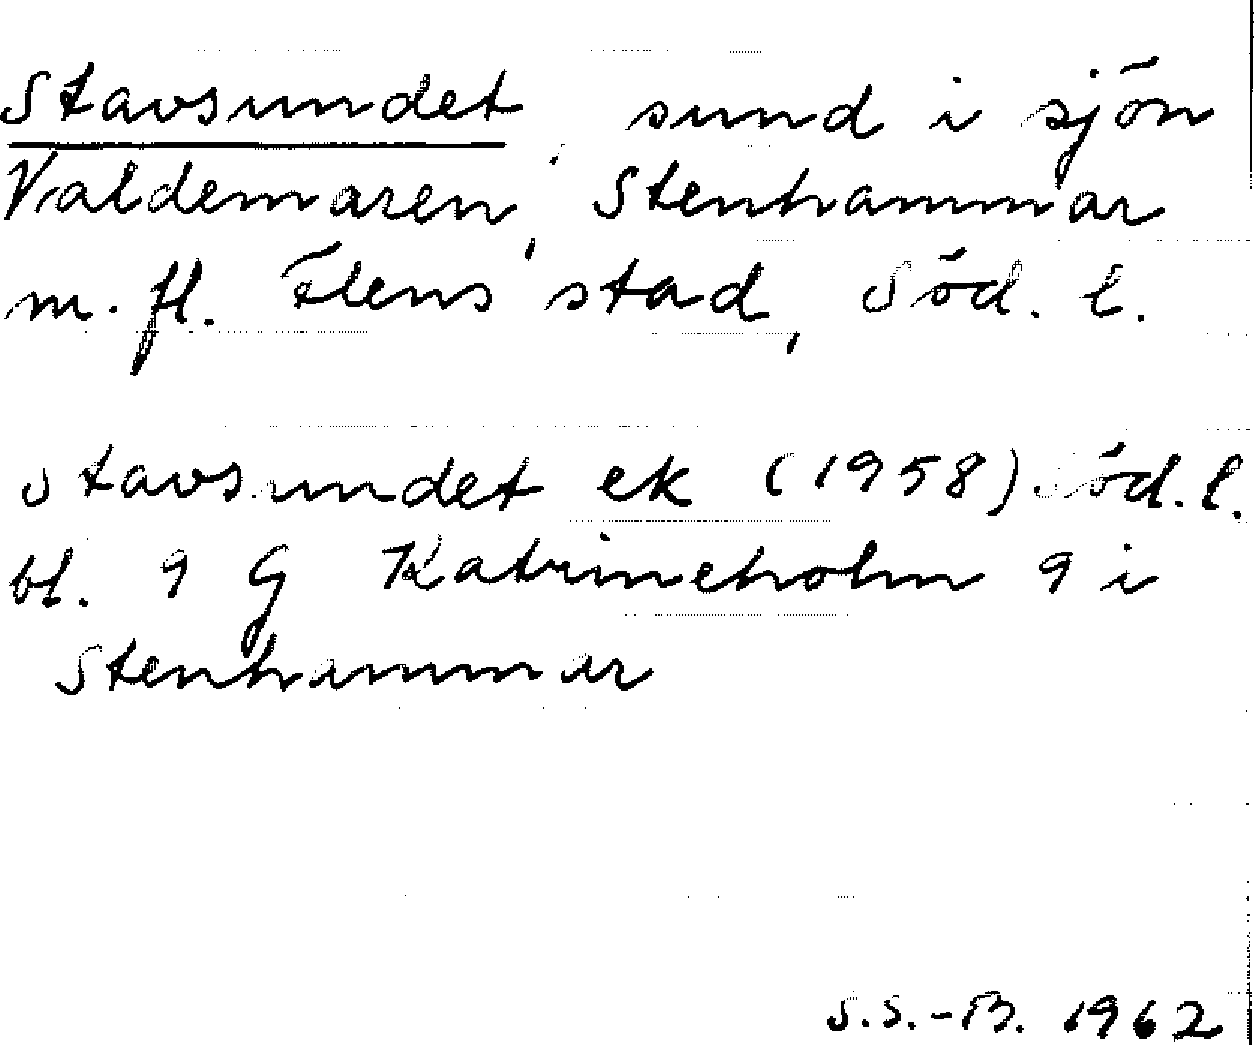 Stavsundet, sund i sjön
Valdemaren, Stenhammar
m. fl. Flens stad, Söd. l.
Stavsundet ek (1958) Söd. l.
bl. 9 G Katrineholm 9 i
Stenhammar
S.S.-B. 1962